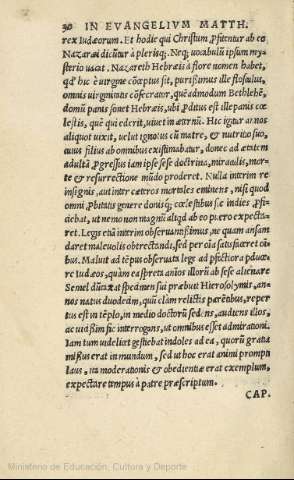 30 IN EVANGELIVM MATTH.
rex Iudæorum. Et hodie qui Christum profitentur ab eo
Nazaræi dicuntur à plerisq;. Neq; vocabulũ ipsum my-
sterio vacat. Nazareth Hebræis à flore nomen habet,
qd' hic è virgine cœptus sit, purissimus ille flosculus,
omnis virginitatis cõsecrator, quẽadmodum Bethlehẽ,
domũ panis sonat Hebræis, ubi proditus est ille panis cœ
lestis, quẽ qui ederit, vivet in æternũ. Hic igitur annos
aliquot vixit, velut ignotus cũ matre, & nutritio suo,
cuius filius ab omnibus existimabatur, donec ad ætatem
adultã, progressus iam ipse sese doctrina, miraculis, mor-
te & resurrectione mũdo proderet. Nulla interim re
insignis, aut inter cæteros mortales eminens, nisi quod
omni probitatis genere donisq; cœlestibus sic indies profi-
ciebat, ut nemo non magnũ aliqd ab eo puero expecta-
ret. Legis etiã interim observantissimus, ne quam ansam
daret malevolis obtrectandi, sed per oĩa satisfaceret oĩ
bus. Maluit ad tẽpus observata lege ad profectiora produce
re Iudæos, quàm ea spreta animos illorũ ab sese alienare
Semel dũtaxat specimen sui præbuit Hierosolymis, an-
nos natus duodecim, quũ clam relictis parẽtibus, reper
tus est in tẽplo, in medio doctorũ sedens, audiens illos,
ac vicissim sic interrogans, ut omnibus esset admirationi.
Iam tum videlicet gestiebat indoles ad ea, quorũ gratia
missus erat in mundum, sed ut hoc erat animi prompti
tuius, ita moderationis & obedientiæ erat exemplum,
expectare tempus à patre præscriptum.
CAP.
Ministerio de Educación, Cultura y Deporte